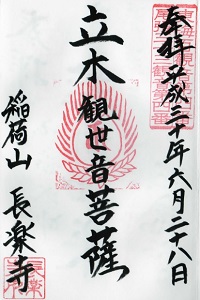 奉拝 平成三十年六月二十八日
立木観世音菩薩
稲荷山 長楽寺